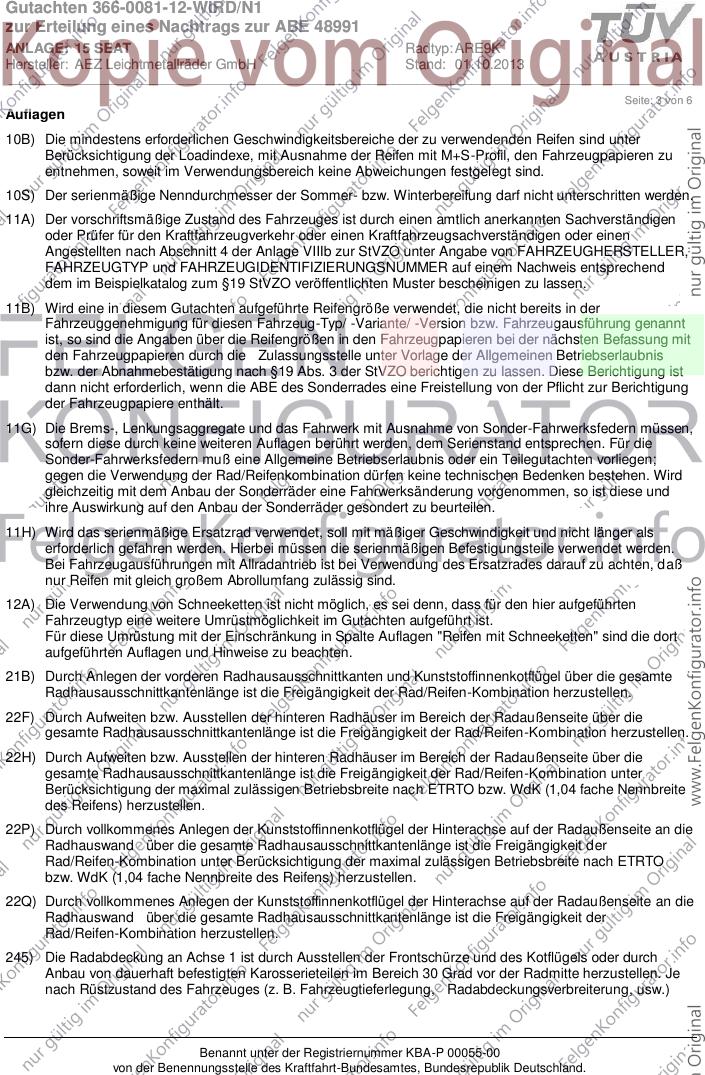 Gutachten 366-0081-12-WIRD/N1
zur Erteilung eines Nachtrags zur ABE 48991
ANLAGE: 15 SEAT Radtyp: ARE9K
Hersteller: AEZ Leichtmetallräder GmbH Stand: 01.10.2013
TÜV
AUSTRIA
Kopie vom Original
Seite: 3 von 6
Auflagen
10B) Die mindestens erforderlichen Geschwindigkeitsbereiche der zu verwendenden Reifen sind unter
Berücksichtigung der Loadindexe, mit Ausnahme der Reifen mit M+S-Profil, den Fahrzeugpapieren zu
entnehmen, soweit im Verwendungsbereich keine Abweichungen festgelegt sind.
10S) Der serienmäßige Nenndurchmesser der Sommer- bzw. Winterbereifung darf nicht unterschritten werden.
11A) Der vorschriftsmäßige Zustand des Fahrzeuges ist durch einen amtlich anerkannten Sachverständigen
oder Prüfer für den Kraftfahrzeugverkehr oder einen Kraftfahrzeugsachverständigen oder einen
Angestellten nach Abschnitt 4 der Anlage VIIIb zur StVZO unter Angabe von FAHRZEUGHERSTELLER,
FAHRZEUGTYP und FAHRZEUGIDENTIFIZIERUNGSNUMMER auf einem Nachweis entsprechend
dem im Beispielkatalog zum §19 StVZO veröffentlichten Muster bescheinigen zu lassen.
11B) Wird eine in diesem Gutachten aufgeführte Reifengröße verwendet, die nicht bereits in der
Fahrzeuggenehmigung für diesen Fahrzeug-Typ/ -Variante/ -Version bzw. Fahrzeugausführung genannt
ist, so sind die Angaben über die Reifengrößen in den Fahrzeugpapieren bei der nächsten Befassung mit
den Fahrzeugpapieren durch die Zulassungsstelle unter Vorlage der Allgemeinen Betriebserlaubnis
bzw. der Abnahmebestätigung nach §19 Abs. 3 der StVZO berichtigen zu lassen. Diese Berichtigung ist
dann nicht erforderlich, wenn die ABE des Sonderrades eine Freistellung von der Pflicht zur Berichtigung
der Fahrzeugpapiere enthält.
FELGEN
KONFIGURATOR
11G) Die Brems-, Lenkungsaggregate und das Fahrwerk mit Ausnahme von Sonder-Fahrwerksfedern müssen,
sofern diese durch keine weiteren Auflagen berührt werden, dem Serienstand entsprechen. Für die
Sonder-Fahrwerksfedern muß eine Allgemeine Betriebserlaubnis oder ein Teilegutachten vorliegen;
gegen die Verwendung der Rad/Reifenkombination dürfen keine technischen Bedenken bestehen. Wird
gleichzeitig mit dem Anbau der Sonderräder eine Fahrwerksänderung vorgenommen, so ist diese und
ihre Auswirkung auf den Anbau der Sonderräder gesondert zu beurteilen.
FelgenKonfigurator.info
11H) Wird das serienmäßige Ersatzrad verwendet, soll mit mäßiger Geschwindigkeit und nicht länger als
erforderlich gefahren werden. Herbei müssen die serienmäßigen Befestigungsteile verwendet werden.
Bei Fahrzeugausführungen mit Allradantrieb ist bei Verwendung des Ersatzrades darauf zu achten, daß
nur Reifen mit gleich großem Abrollumfang zulässig sind.
12A) Die Verwendung von Schneeketten ist nicht möglich, es sei denn, dass für den hier aufgeführten
Fahrzeugtyp eine weitere Umrüstmöglichkeit im Gutachten aufgeführt ist.
Für diese Umrüstung mit der Einschränkung in Spalte Auflagen "Reifen mit Schneeketten" sind die dort
aufgeführten Auflagen und Hinweise zu beachten.
21B) Durch Anlegen der vorderen Radhausausschnittkanten und Kunststoffinnenkotflügel über die gesamte
Radhausausschnittkantenlänge ist die Freigängigkeit der Rad/Reifen-Kombination herzustellen.
22F) Durch Aufweiten bzw. Ausstellen der hinteren Radhäuser im Bereich der Radaußenseite über die
gesamte Radhausausschnittkantenlänge ist die Freigängigkeit der Rad/Reifen-Kombination herzustellen.
22H) Durch Aufweiten bzw. Ausstellen der hinteren Radhäuser im Bereich der Radaußenseite über die
gesamte Radhausausschnittkantenlänge ist die Freigängigkeit der Rad/Reifen-Kombination unter
Berücksichtigung der maximal zulässigen Betriebsbreite nach ETRTO bzw. WdK (1,04 fache Nennbreite
des Reifens) herzustellen.
22P) Durch vollkommenes Anlegen der Kunststoffinnenkotflügel der Hinterachse auf der Radaußenseite an die
Radhauswand über die gesamte Radhausausschnittkantenlänge ist die Freigängigkeit der
Rad/Reifen-Kombination unter Berücksichtigung der maximal zulässigen Betriebsbreite nach ETRTO
bzw. WdK (1,04 fache Nennbreite des Reifens) herzustellen.
22Q) Durch vollkommenes Anlegen der Kunststoffinnenkotflügel der Hinterachse auf der Radaußenseite an die
Radhauswand über die gesamte Radhausausschnittkantenlänge ist die Freigängigkeit der
Rad/Reifen-Kombination herzustellen.
245) Die Radabdeckung an Achse 1 ist durch Ausstellen der Frontschürze und des Kotflügels oder durch
Anbau von dauerhaft befestigten Karosserieteilen im Bereich 30 Grad vor der Radmitte herzustellen. Je
nach Rüstzustand des Fahrzeuges (z. B. Fahrzeugtieferlegung, Radabdeckungsverbreiterung, usw.)
nur gültig im Original
www.FelgenKonfigurator.info
Benannt unter der Registriernummer KBA-P 00055-00
von der Benennungsstelle des Kraftfahrt-Bundesamtes, Bundesrepublik Deutschland.